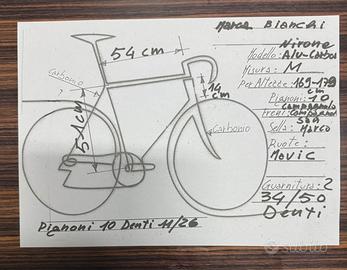 Marca Bianchi
Nirone
Modello: Alu-Carbon
Misura: M
Per Altezze: 169-179
cm
Pignoni: 10
Campagnolo
Freni: Campagnolo
Sella: San Marco
Ruote:
Mavic
Guarnitura: 2
34/50
Denti
54 cm
14
cm
51 cm
Carbonio
Carbonio
Pignoni 10 Denti 11/26
subito